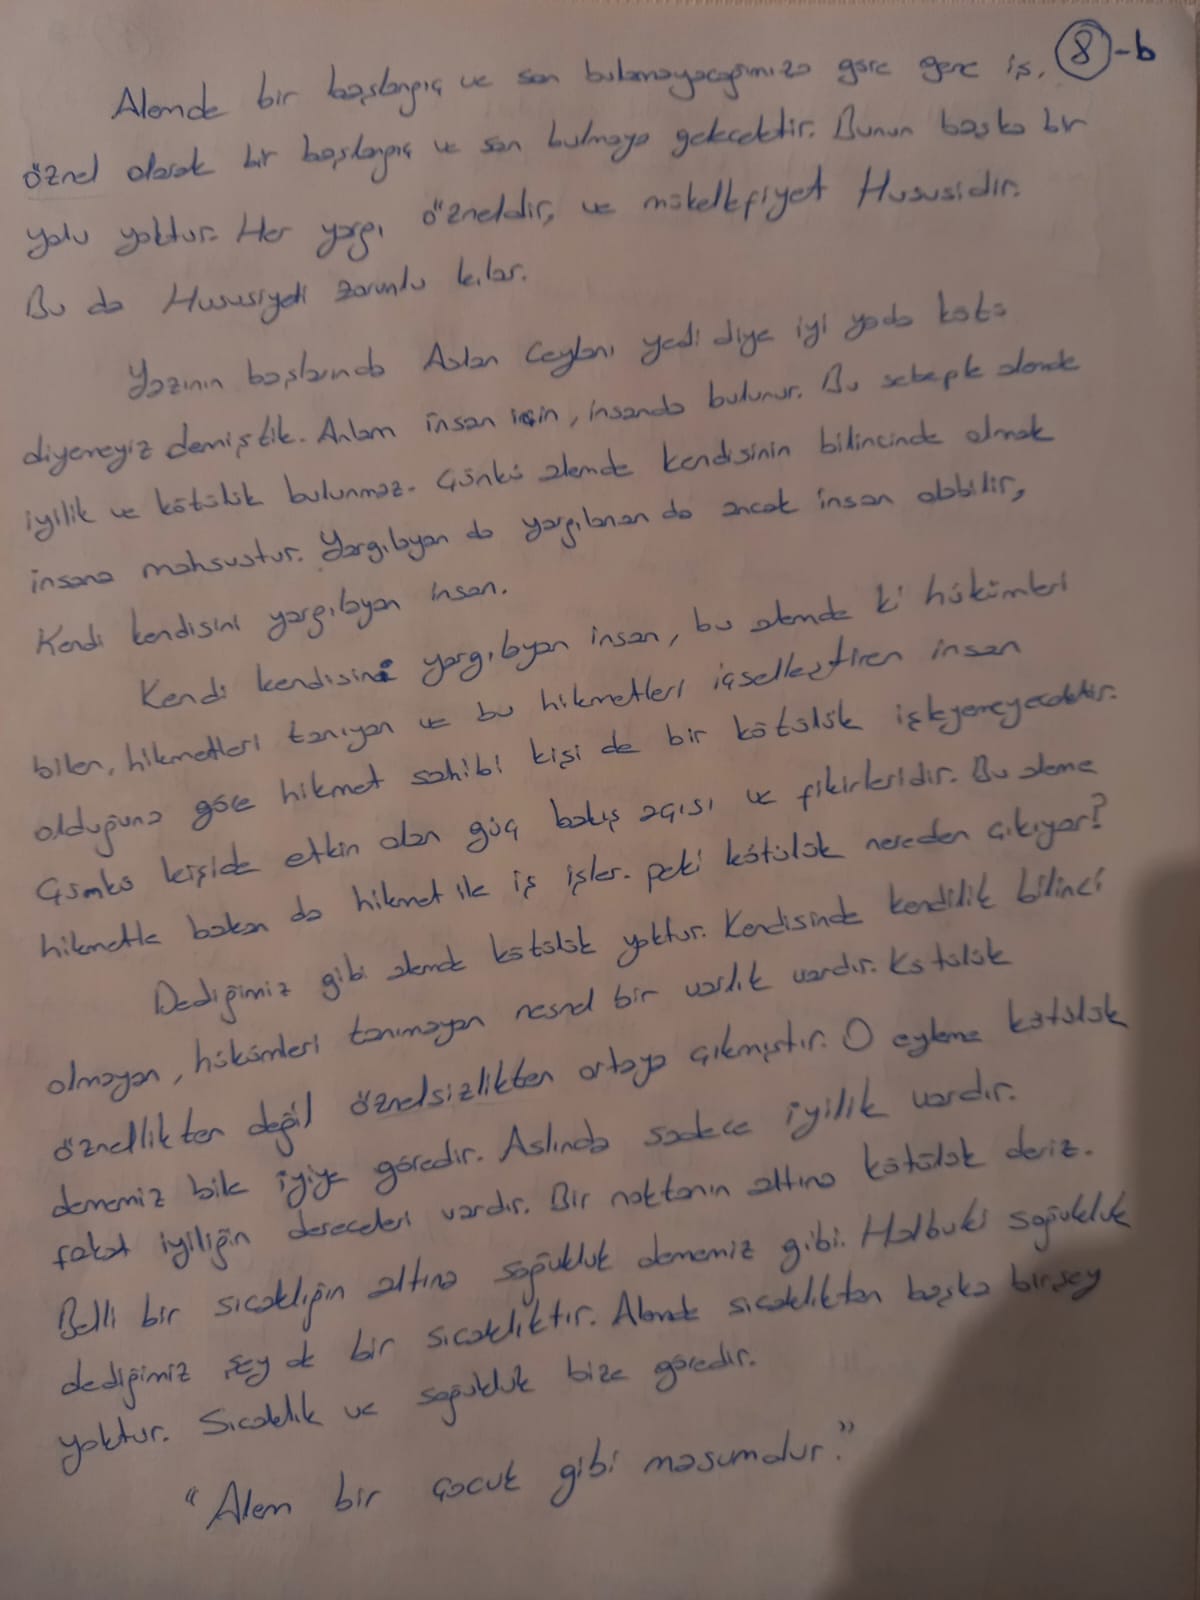 8-b
Alemde bir başlangıç ve son bulamayacağımıza göre gene iş,
öznel olarak bir başlangıç ve son bulmaya gelecektir. Bunun başka bir
yolu yoktur. Her yargı özneldir, ve mükellefiyet Hususidir.
Bu da Hususiyeti zorunlu kılar.
Yazının başlarında Aslan Ceylanı yedi diye iyi yada kötü
diyemeyiz demiştik. Anlam insan için, insanda bulunur. Bu sebeple alemde
iyilik ve kötülük bulunmaz. Çünkü alemde kendisinin bilincinde olmak
insana mahsustur. Yargılayan da yargılanan da ancak insan olabilir,
Kendi kendisini yargılayan insan.
Kendi kendisini yargılayan insan, bu alemde ki hükümleri
bilen, hikmetleri tanıyan ve bu hikmetleri içselleştiren insan
olduğuna göre hikmet sahibi kişi de bir kötülük işleyemeyecektir.
Çünkü kişide etkin olan güç bakış açısı ve fikirleridir. Bu aleme
hikmetle bakan da hikmet ile iş işler. peki kötülük nereden çıkıyor?
Dediğimiz gibi alemde kötülük yoktur. Kendisinde kendilik bilinci
olmayan, hükümleri tanımayan nesnel bir varlık vardır. Kötülük
öznellikten değil öznelsizlikten ortaya çıkmıştır. O eyleme kötülük
dememiz bile iyiye göredir. Aslında sadece iyilik vardır.
fakat iyiliğin dereceleri vardır. Bir noktanın altına kötülük deriz.
Belli bir sıcaklığın altına soğukluk dememiz gibi. Halbuki soğukluk
dediğimiz şey de bir sıcaklıktır. Alemde sıcaklıktan başka birşey
yoktur. Sıcaklık ve soğukluk bize göredir.
"Alem bir çocuk gibi masumdur."